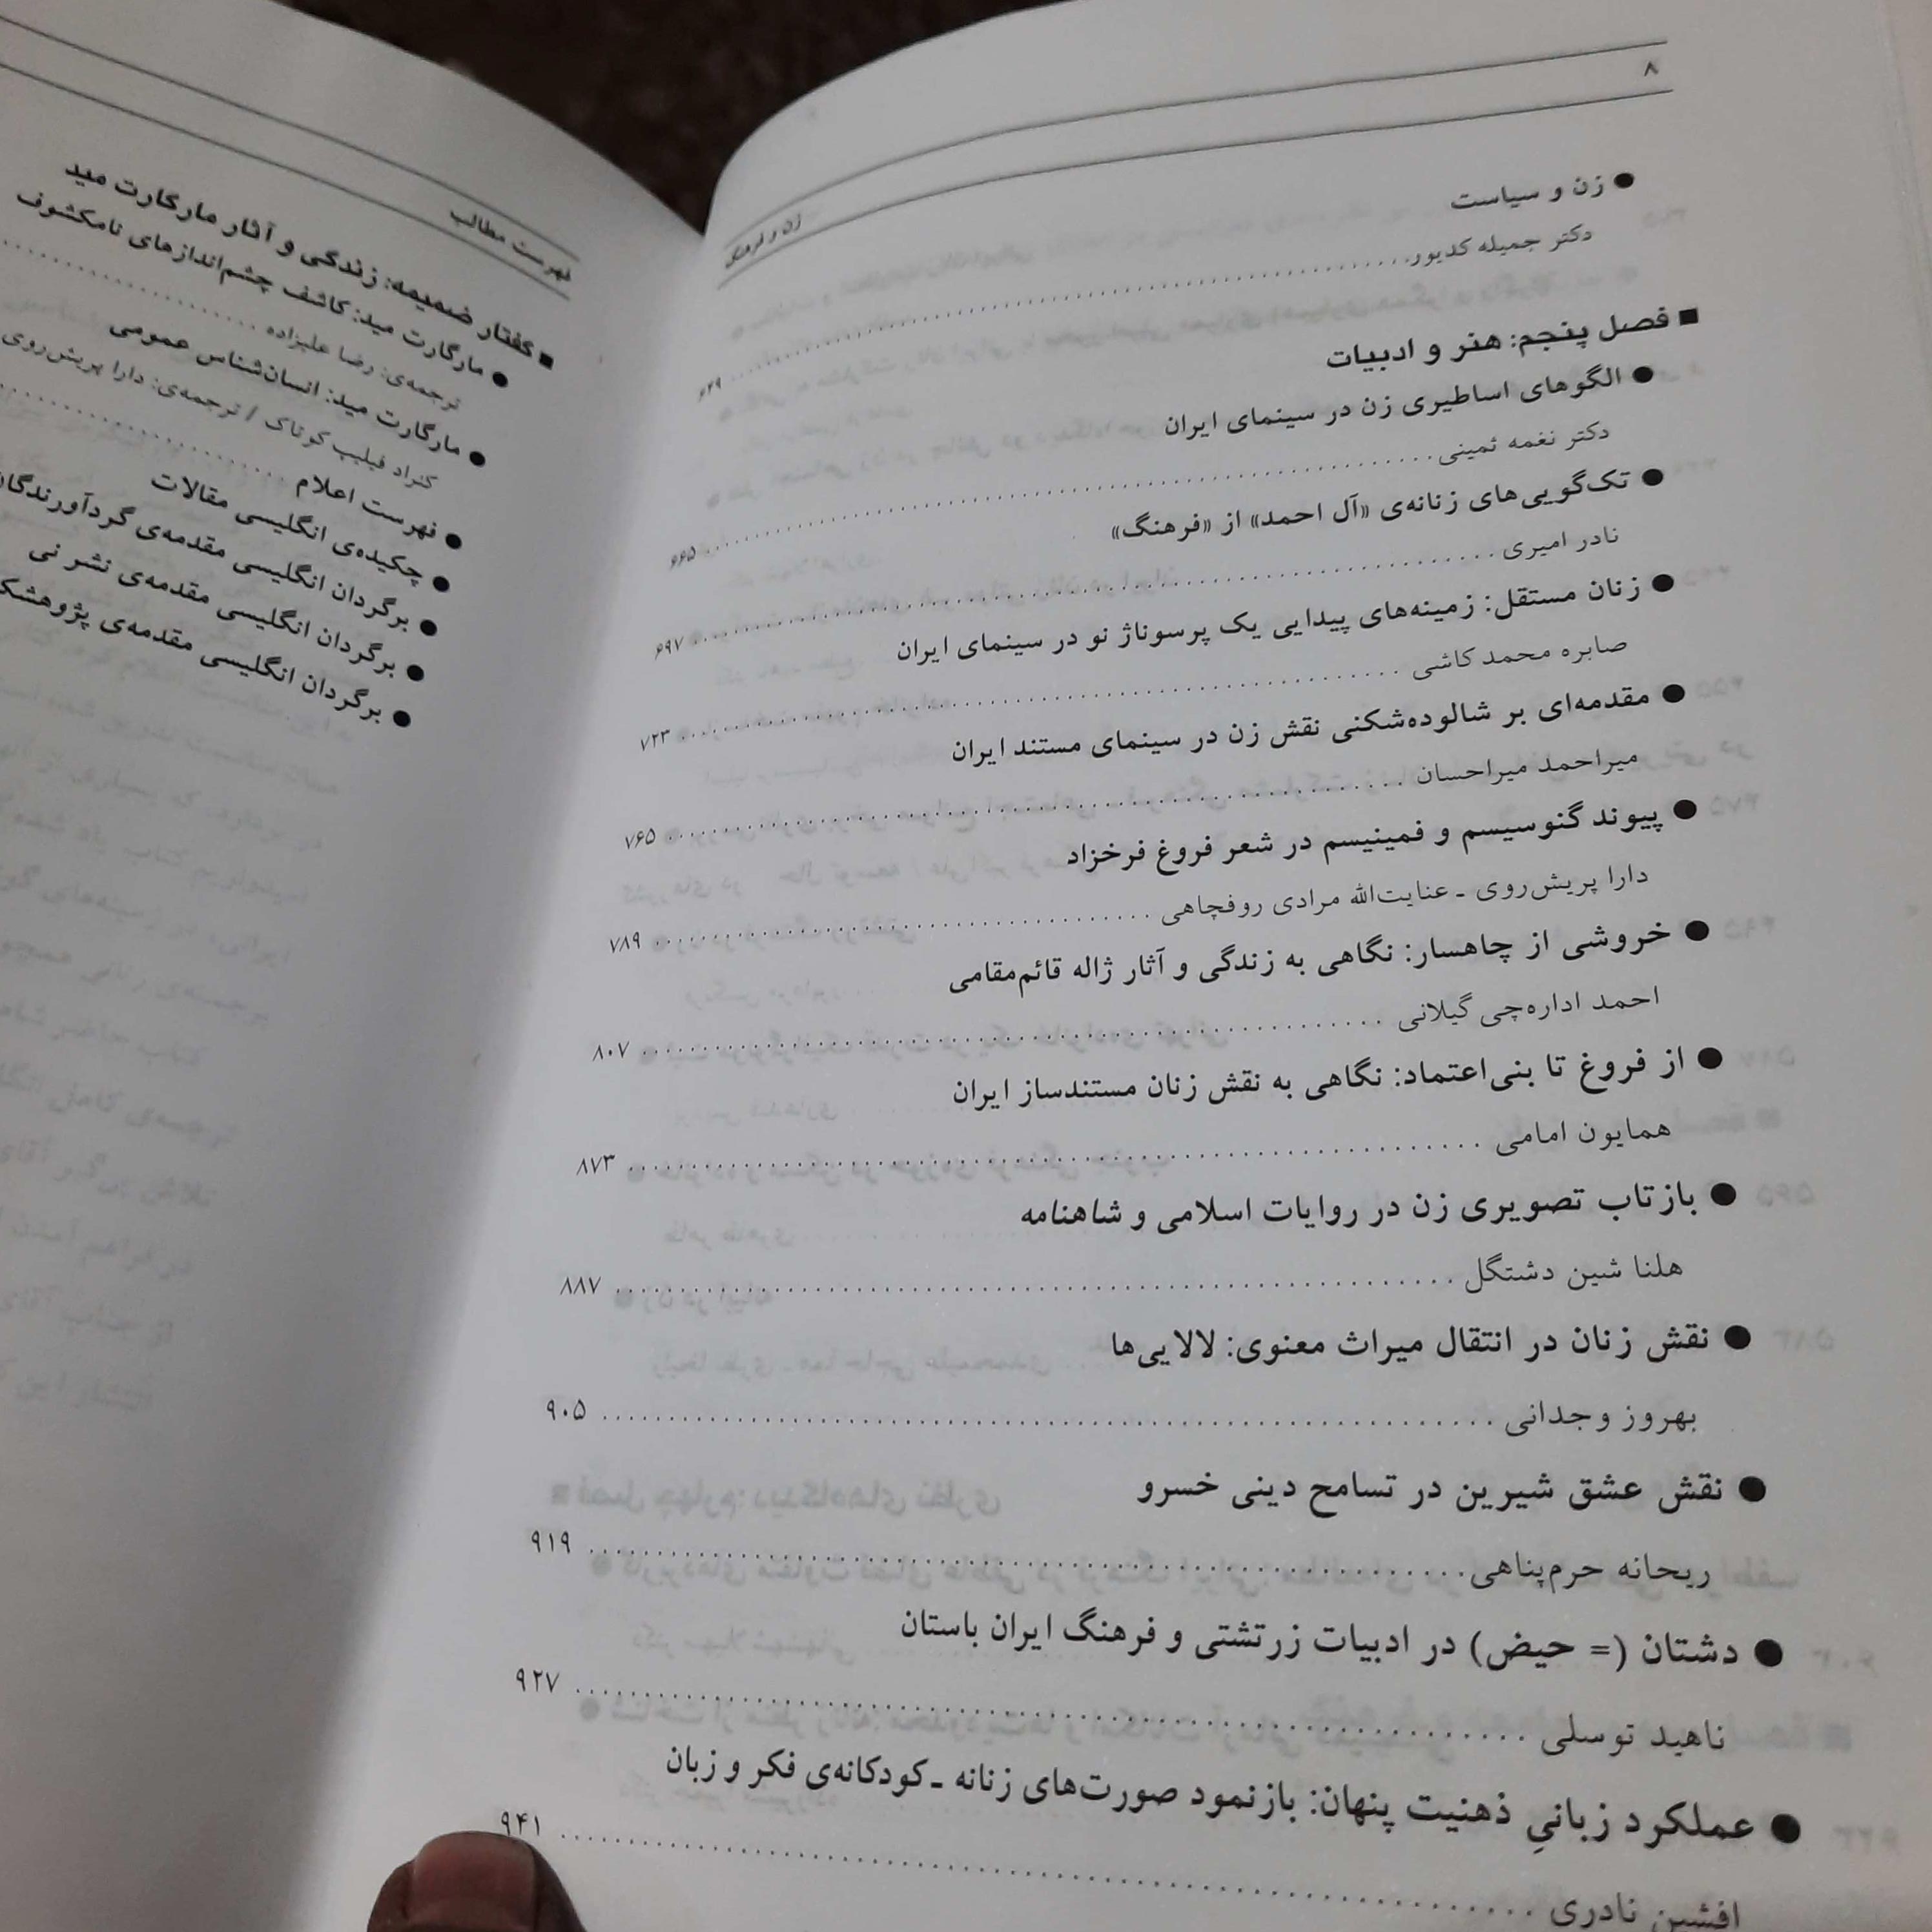 ۸
زن و فرهنگ
● زن و سیاست
دکتر جمیله کدیور ........ ۶۴۹
■ فصل پنجم: هنر و ادبیات
● الگوهای اساطیری زن در سینمای ایران
دکتر نغمه ثمینی ........ ۶۶۵
● تک‌گویی‌های زنانه‌ی «آل احمد» از «فرهنگ»
نادر امیری ........ ۶۹۷
● زنان مستقل: زمینه‌های پیدایی یک پرسوناژ نو در سینمای ایران
صابره محمدکاشی ........ ۷۲۳
● مقدمه‌ای بر شالوده‌شکنی نقش زن در سینمای مستند ایران
میراحمد میراحسان ........ ۷۶۵
● پیوند گنوسیسم و فمینیسم در شعر فروغ فرخزاد
دارا پریش‌روی ـ عنایت‌الله مرادی روفچاهی ........ ۷۸۹
● خروشی از چاهسار: نگاهی به زندگی و آثار ژاله قائم‌مقامی
احمد اداره‌چی گیلانی ........ ۸۰۷
● از فروغ تا بنی‌اعتماد: نگاهی به نقش زنان مستندساز ایران
همایون امامی ........ ۸۷۳
● بازتاب تصویری زن در روایات اسلامی و شاهنامه
هلنا شین دشتگل ........ ۸۸۷
● نقش زنان در انتقال میراث معنوی: لالایی‌ها
بهروز وجدانی ........ ۹۰۵
● نقش عشق شیرین در تسامح دینی خسرو
ریحانه حرم‌پناهی ........ ۹۱۹
● دشتان (= حیض) در ادبیات زرتشتی و فرهنگ ایران باستان
ناهید توسلی ........ ۹۲۷
● عملکرد زبانیِ ذهنیت پنهان: بازنمود صورت‌های زنانه ـ کودکانه‌ی فکر و زبان
افشین نادری ........ ۹۴۱
فهرست مطالب
■ گفتار ضمیمه: زندگی و آثار مارگارت مید
● مارگارت مید: کاشف چشم‌اندازهای نامکشوف
ترجمه‌ی: رضا علیزاده ........
● مارگارت مید: انسان‌شناس عمومی
کنراد فیلیپ کوتاک / ترجمه‌ی: دارا پریش‌روی
● فهرست اعلام ........
● چکیده‌ی انگلیسی مقالات
● برگردان انگلیسی مقدمه‌ی گردآورندگان
● برگردان انگلیسی مقدمه‌ی نشر نی
● برگردان انگلیسی مقدمه‌ی